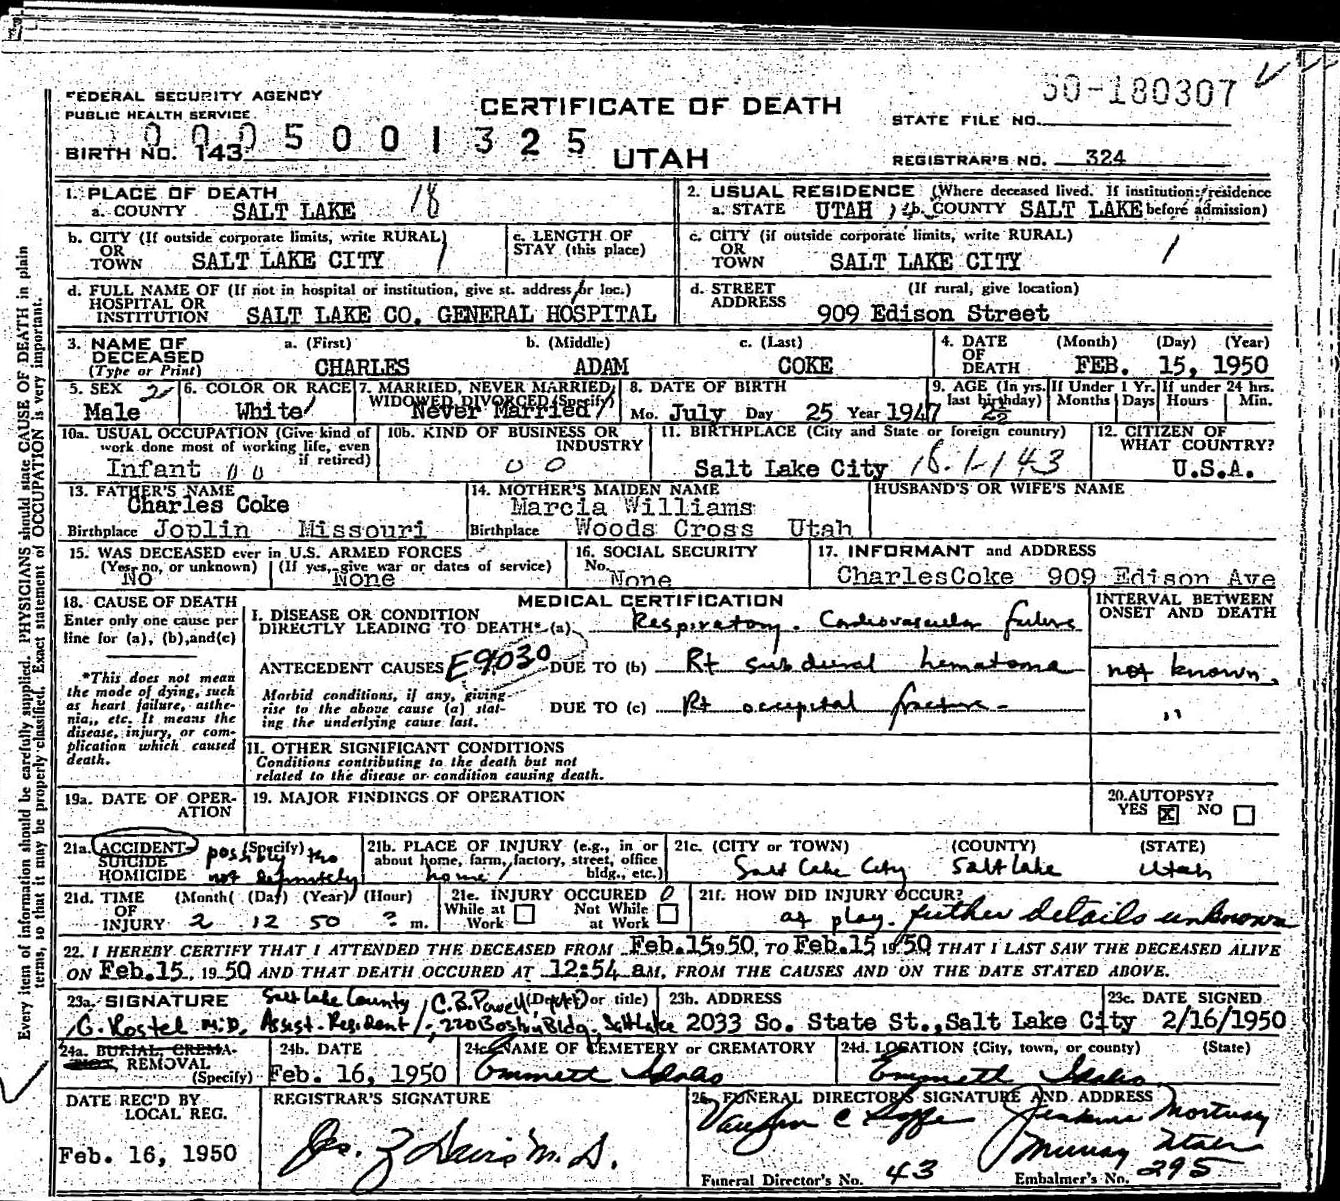 50-180307
FEDERAL SECURITY AGENCY
PUBLIC HEALTH SERVICE
CERTIFICATE OF DEATH
STATE FILE NO.
0005001325
BIRTH NO. 143
UTAH
REGISTRAR'S NO. 324
1. PLACE OF DEATH 18
a. COUNTY SALT LAKE
2. USUAL RESIDENCE (Where deceased lived. If institution: residence
a. STATE UTAH b. COUNTY SALT LAKE before admission)
b. CITY (If outside corporate limits, write RURAL)
OR
TOWN SALT LAKE CITY
c. LENGTH OF
STAY (this place)
c. CITY (if outside corporate limits, write RURAL)
OR
TOWN SALT LAKE CITY
d. FULL NAME OF (If not in hospital or institution, give st. address or loc.)
HOSPITAL OR
INSTITUTION SALT LAKE CO. GENERAL HOSPITAL
d. STREET (If rural, give location)
ADDRESS
909 Edison Street
3. NAME OF a. (First) b. (Middle) c. (Last)
DECEASED
(Type or Print) CHARLES ADAM COKE
4. DATE (Month) (Day) (Year)
OF
DEATH FEB. 15, 1950
5. SEX 2
Male
6. COLOR OR RACE
White
7. MARRIED, NEVER MARRIED,
WIDOWED, DIVORCED (Specify)
Never Married
8. DATE OF BIRTH
Mo. July Day 25 Year 1947
9. AGE (In yrs. last birthday) 2½
If Under 1 Yr. Months Days
If under 24 hrs. Hours Min.
10a. USUAL OCCUPATION (Give kind of
work done most of working life, even
if retired)
Infant 00
10b. KIND OF BUSINESS OR
INDUSTRY
00
11. BIRTHPLACE (City and State or foreign country)
Salt Lake City 18.1-143
12. CITIZEN OF
WHAT COUNTRY?
U.S.A.
13. FATHER'S NAME
Charles Coke
Birthplace Joplin Missouri
14. MOTHER'S MAIDEN NAME
Marcia Williams
Birthplace Woods Cross Utah
HUSBAND'S OR WIFE'S NAME
15. WAS DECEASED ever in U.S. ARMED FORCES
(Yes, no, or unknown) (If yes, give war or dates of service)
No None
16. SOCIAL SECURITY
No. None
17. INFORMANT and ADDRESS
CharlesCoke 909 Edison Ave
18. CAUSE OF DEATH
Enter only one cause per
line for (a), (b), and (c)
*This does not mean
the mode of dying, such
as heart failure, asthe-
nia, etc. It means the
disease, injury, or com-
plication which caused
death.
MEDICAL CERTIFICATION
INTERVAL BETWEEN
ONSET AND DEATH
I. DISEASE OR CONDITION
DIRECTLY LEADING TO DEATH* (a) Respiratory. Cardiovascular failure
ANTECEDENT CAUSES E9030 DUE TO (b) Rt subdural hematoma not known.
Morbid conditions, if any, giving
rise to the above cause (a) stat-
ing the underlying cause last.
DUE TO (c) Rt occipital fracture - "
II. OTHER SIGNIFICANT CONDITIONS
Conditions contributing to the death but not
related to the disease or condition causing death.
19a. DATE OF OPER-
ATION
19. MAJOR FINDINGS OF OPERATION
20. AUTOPSY?
YES X NO
21a. ACCIDENT (Specify)
SUICIDE
HOMICIDE
possibly tho
not definitely
21b. PLACE OF INJURY (e.g., in or
about home, farm, factory, street, office
bldg., etc.)
home
21c. (CITY OR TOWN) (COUNTY) (STATE)
Salt Lake City Salt Lake Utah
21d. TIME (Month) (Day) (Year) (Hour)
OF
INJURY 2 12 50 ? m.
21e. INJURY OCCURED 0
While at Work Not While at Work
21f. HOW DID INJURY OCCUR?
at play. futher details unknown
22. I HEREBY CERTIFY THAT I ATTENDED THE DECEASED FROM Feb.15 1950, TO Feb.15 1950 THAT I LAST SAW THE DECEASED ALIVE
ON Feb.15, 1950 AND THAT DEATH OCCURED AT 12:54 aM, FROM THE CAUSES AND ON THE DATE STATED ABOVE.
23a. SIGNATURE Salt Lake County / C.B. Powell (Degree or title)
G. Kostel M.D. Assist. Resident / 220 Boston Bldg. Salt Lake
23b. ADDRESS
2033 So. State St., Salt Lake City
23c. DATE SIGNED
2/16/1950
24a. BURIAL, CREMA-
REMOVAL
(Specify)
24b. DATE
Feb. 16, 1950
24c. NAME OF CEMETERY or CREMATORY
Emmett Idaho
24d. LOCATION (City, town, or county) (State)
Emmett Idaho
DATE REC'D BY
LOCAL REG.
Feb. 16, 1950
REGISTRAR'S SIGNATURE
Jos. Z Davis M.D.
25. FUNERAL DIRECTOR'S SIGNATURE AND ADDRESS
Jenkins Mortuary
Murray Utah
Funeral Director's No. 43 Embalmer's No. 295
Every item of information should be carefully supplied. PHYSICIANS should state CAUSE OF DEATH in plain
terms, so that it may be properly classified. Exact statement of OCCUPATION is very important.